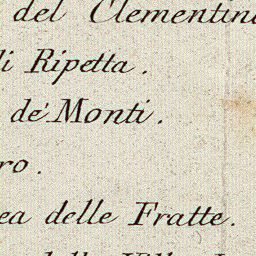 del Clementin
di Ripetta.
de' Monti.
ro.
ea delle Fratte.